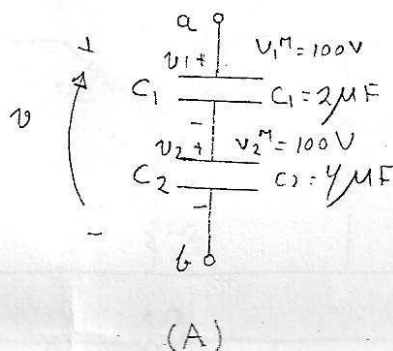 a
+ v₁ + V₁ᴹ = 100V
v C₁ C₁ = 2μF
-
v₂ + v₂ᴹ = 100V
C₂ C₂ = 4μF
- -
b
(A)